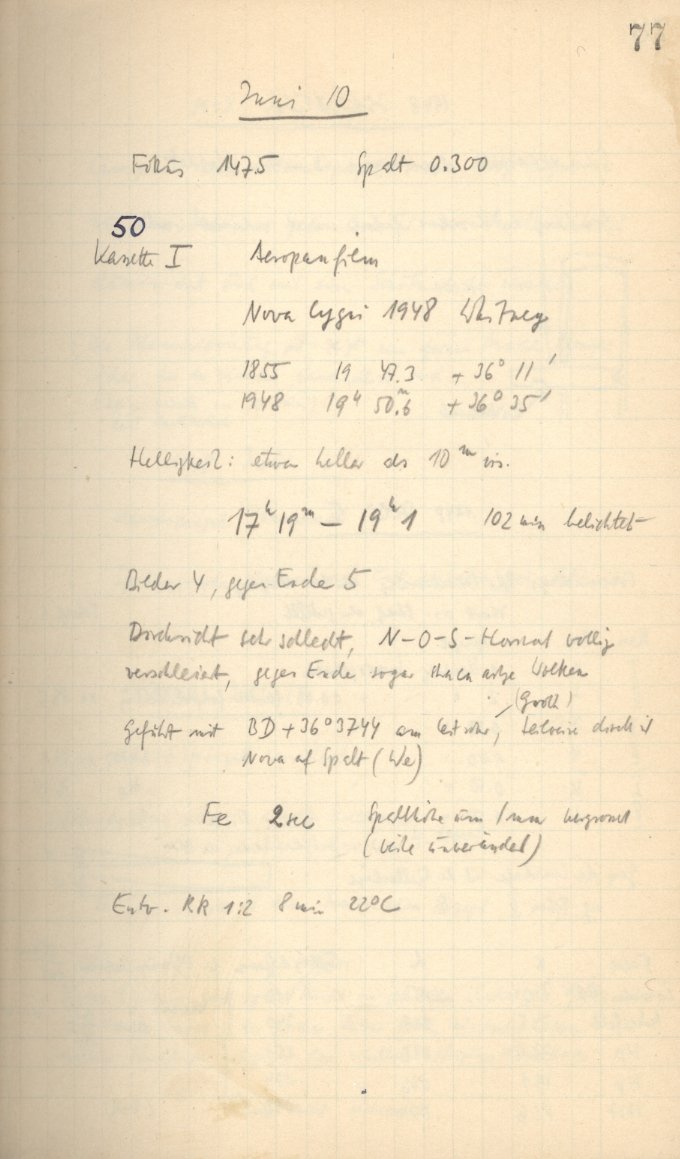 77
Juni 10
Fokus 147.5 Spalt 0.300
50
Kassette I Aeropanfilm
Nova Cygni 1948 Whitney
1855 19 47.3 + 36° 11'
1948 19h 50.m6 + 36° 35'
Helligkeit: etwa heller als 10m vis.
17h 19m — 19h 1 102 min belichtet
Bilder 4, gegen Ende 5
Durchsicht sehr schlecht, N-O-S-Horizont völlig
verschleiert, gegen Ende sogar Wolken
(Groth)
Geführt mit BD +36°3744 am Leitrohr, teilweise direkt
Nova auf Spalt (We)
Fe 2 sec Spalthöhe um 1 mm
(Breite unverändert)
Entw. RR 1:2 8 min 22°C